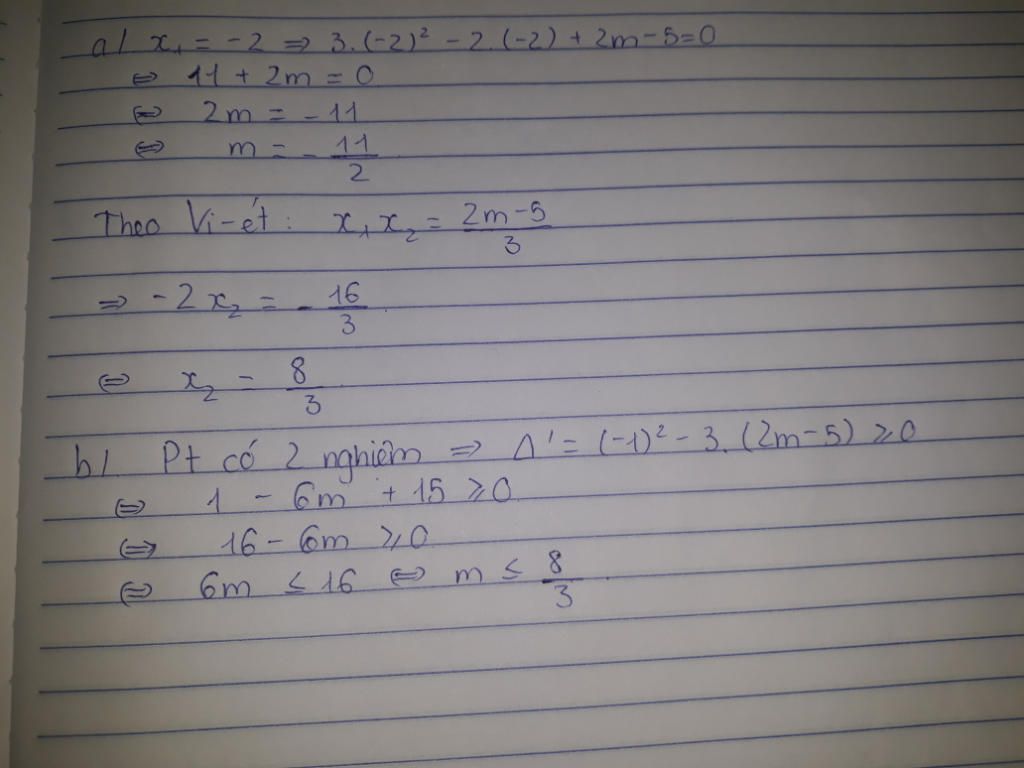 a/ x₁ = -2 ⇒ 3.(-2)² - 2.(-2) + 2m - 5 = 0
⇔ 11 + 2m = 0
⇔ 2m = -11
⇔ m = -11/2
Theo Vi-ét: x₁x₂ = (2m-5)/3
⇒ -2x₂ = -16/3
⇔ x₂ = 8/3
b/ Pt có 2 nghiệm ⇒ Δ' = (-1)² - 3.(2m-5) ⩾ 0
⇔ 1 - 6m + 15 ⩾ 0
⇔ 16 - 6m ⩾ 0
⇔ 6m ≤ 16 ⇔ m ≤ 8/3